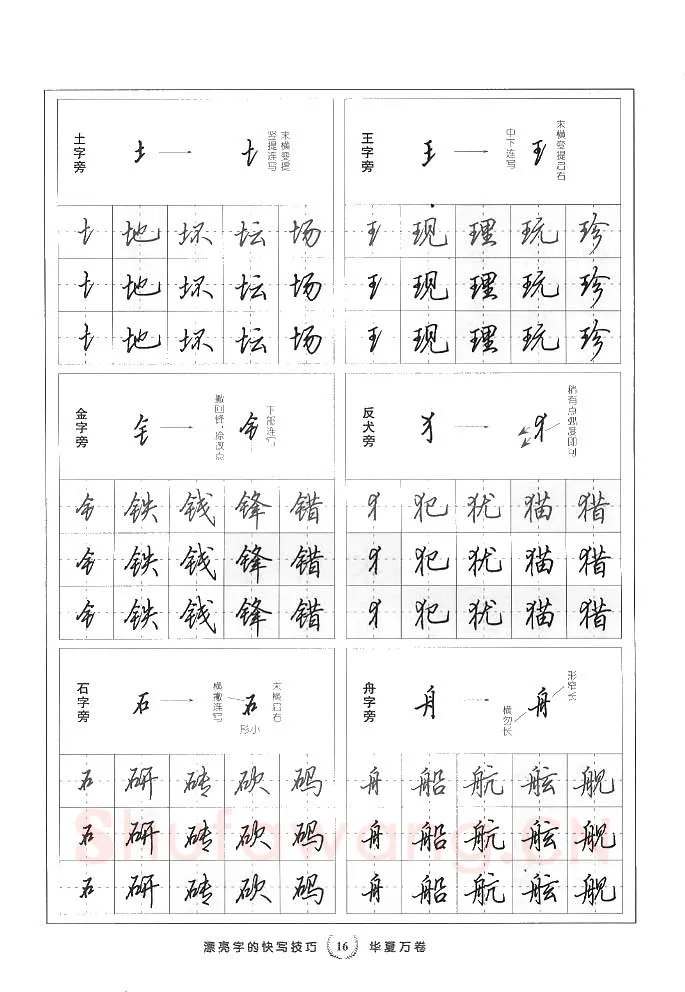 土字旁
土
土
竖提连写
末横变提
土 地 坏 坛 场
土 地 坏 坛 场
土 地 坏 坛 场
王字旁
王
中下连写
王
末横变提启右
王 现 理 玩 珍
王 现 理 玩 珍
王 现 理 玩 珍
金字旁
钅
撇回锋，添改点
钅
下部连写
钅 铁 钱 锋 错
钅 铁 钱 锋 错
钅 铁 钱 锋 错
反犬旁
犭
犭
稍有点弧度即可
犭 犯 犹 猫 猎
犭 犯 犹 猫 猎
犭 犯 犹 猫 猎
石字旁
石
横撇连写
石
形小
末横启右
石 研 砖 砍 码
石 研 砖 砍 码
石 研 砖 砍 码
舟字旁
舟
横勿长
舟
形窄长
舟 船 航 舷 舰
舟 船 航 舷 舰
舟 船 航 舷 舰
Shufawang.CN
漂亮字的快写技巧 16 华夏万卷